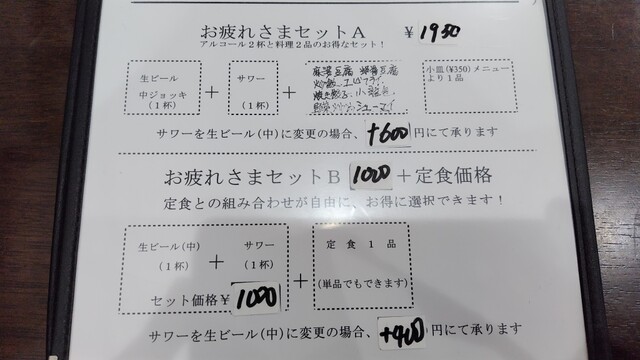 お疲れさまセットA ¥1950
アルコール2杯と料理2品のお得なセット!
生ビール
中ジョッキ
(1杯)
+
サワー
(1杯)
+
麻婆豆腐
シューマイ
小皿(¥350)メニュー
より1品
サワーを生ビール(中)に変更の場合、+600円にて承ります
お疲れさまセットB 1000+定食価格
定食との組み合わせが自由に、お得に選択できます!
生ビール(中)
(1杯)
+
サワー
(1杯)
セット価格¥1000
+
定食1品
(単品でもできます)
サワーを生ビール(中)に変更の場合、+400円にて承ります